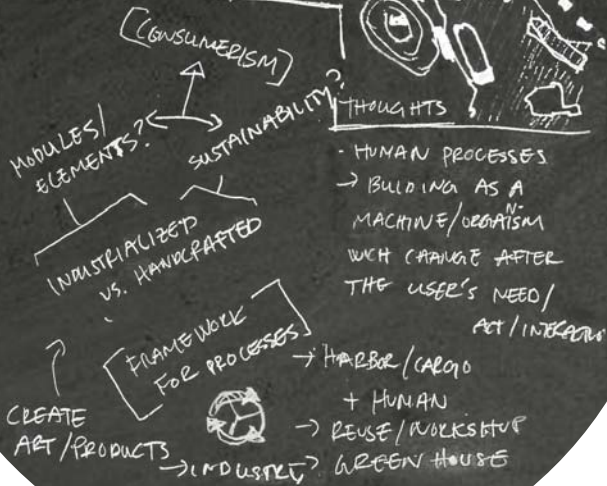 [CONSUMERISM]
MODULES/
ELEMENTS?
SUSTAINABILITY?
INDUSTRIALIZED
VS. HANDCRAFTED
[FRAMEWORK
FOR PROCESSES]
CREATE
ART/PRODUCTS
→ INDUSTRY?
THOUGHTS
- HUMAN PROCESSES
→ BUILDING AS A
MACHINE/ORGANISM
WICH CHANGE AFTER
THE USER'S NEED/
ACT/INTERACTION
→ HARBOR/CARGO
+ HUMAN
→ REUSE/WORKSHOP
GREEN HOUSE